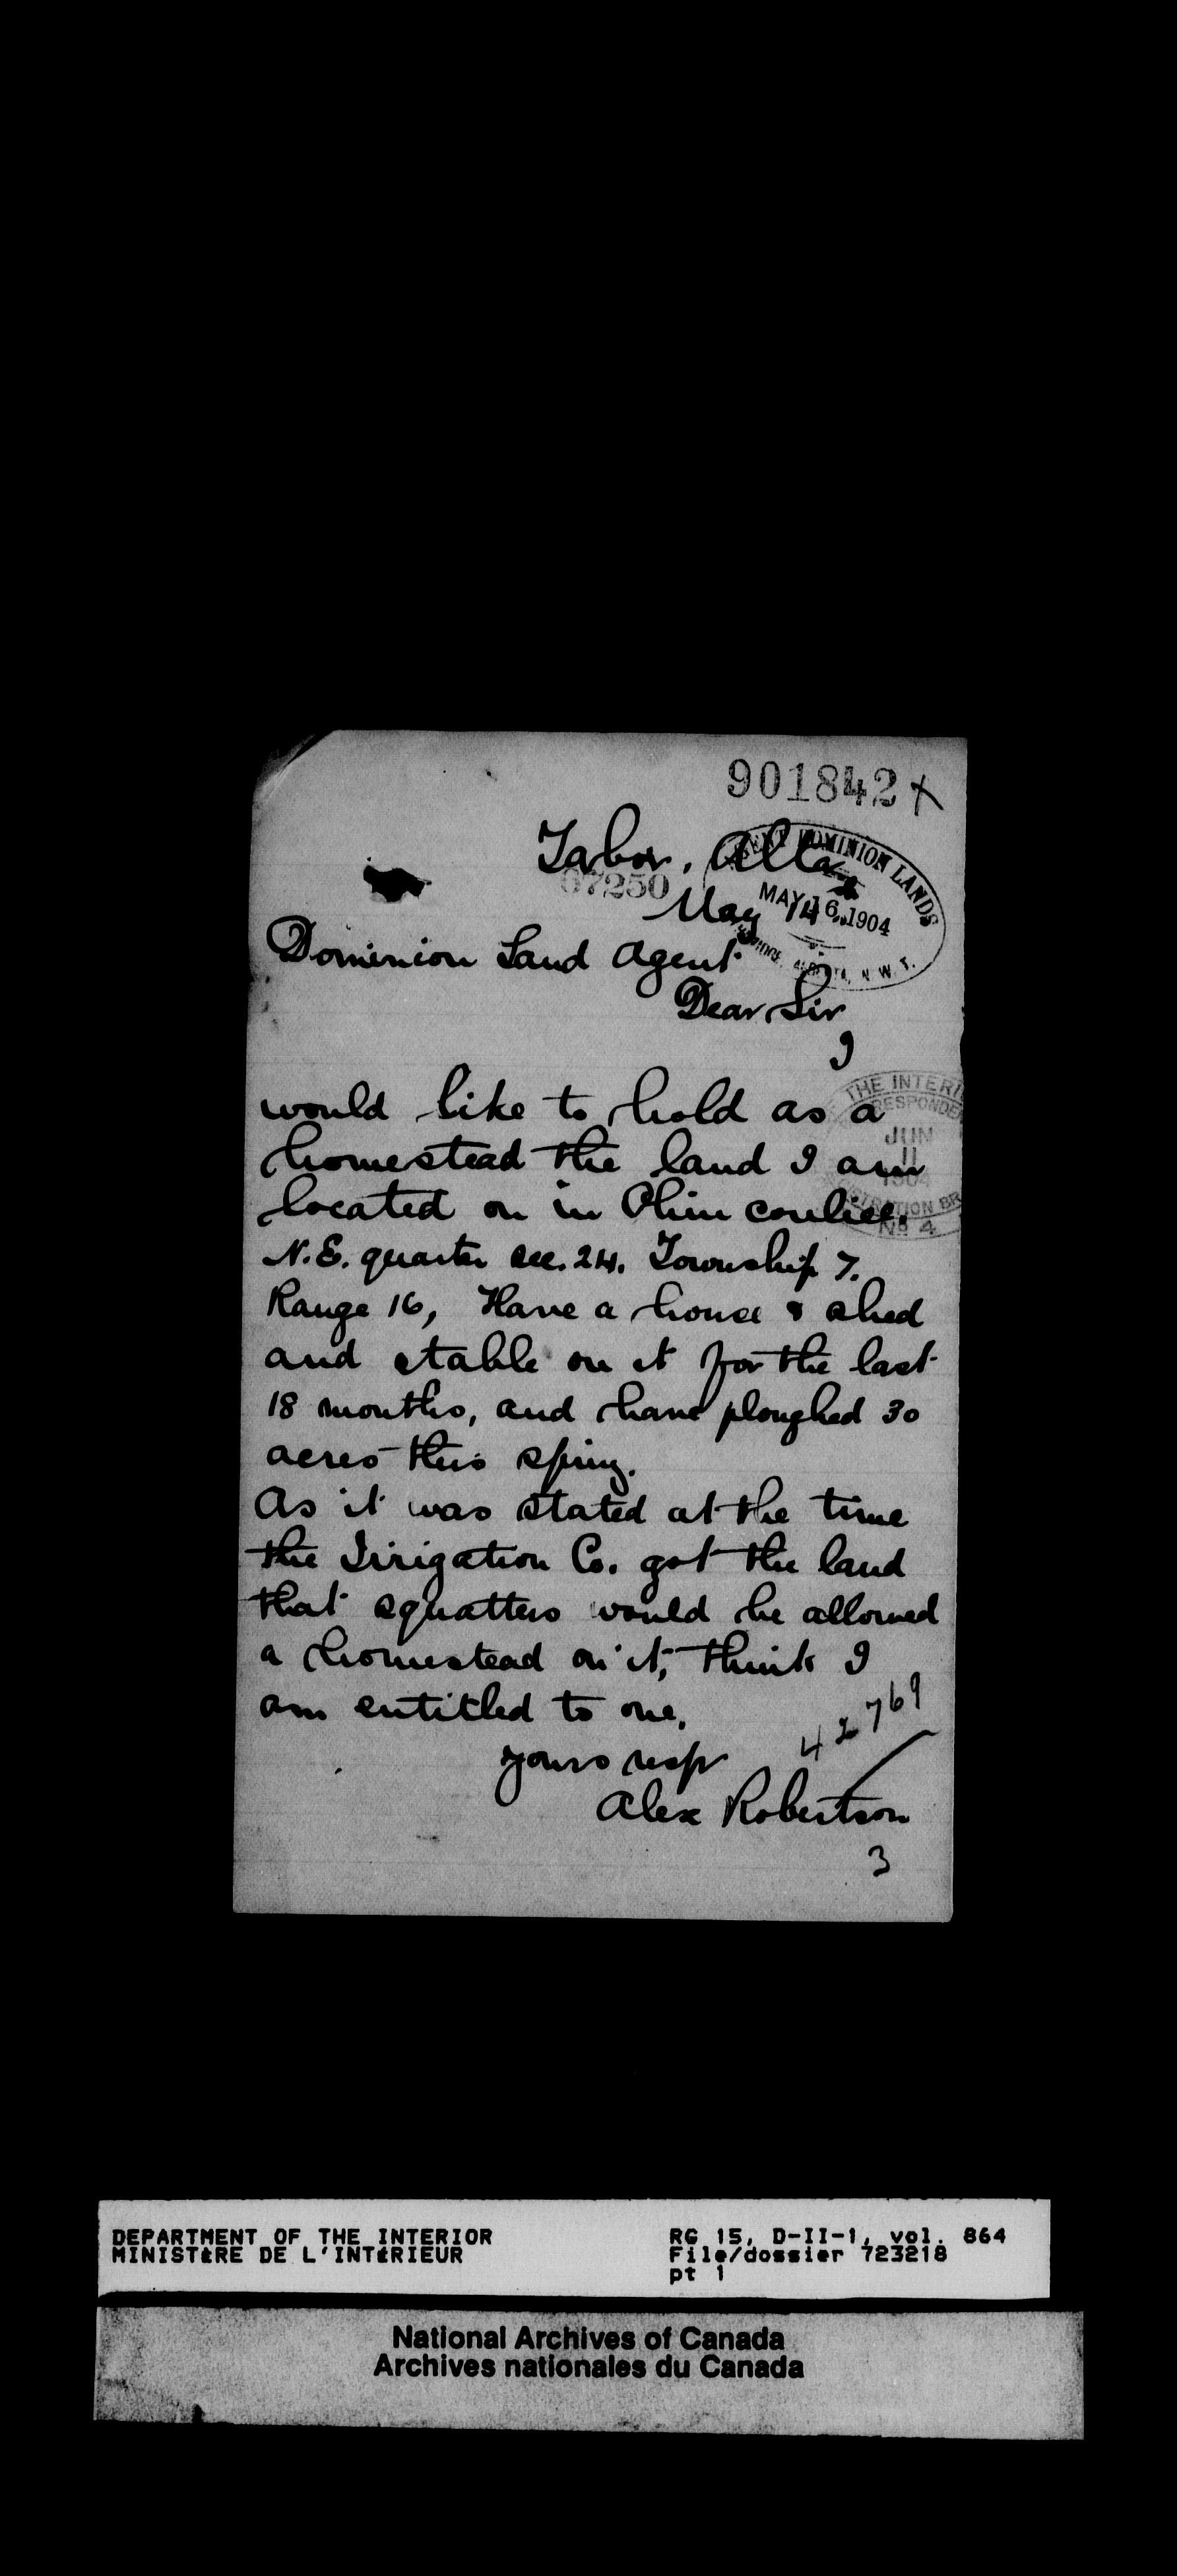 901842 X
Tabor, Alta
67250
AGENT DOMINION LANDS
MAY 16 1904
N. W. T.
May 14
Dominion Land Agent
Dear Sir
I
would like to hold as a
THE INTERI
RESPONDE
JUN
11
1904
REGISTRATION BR
No 4
homestead the land I am
located on in Chin couliee.
N.E. quarter sec. 24. Township 7.
Range 16, Have a house & shed
and stable on it for the last
18 months, and have ploughed 30
acres this spring.
As it was stated at the time
the Irrigation Co. got the land
that squatters would be allowed
a homestead on it, think I
am entitled to one.
42769
yours resp
Alex Robertson
3
DEPARTMENT OF THE INTERIOR
MINISTÈRE DE L'INTÉRIEUR
RG 15, D-II-1, vol. 864
File/dossier 723218
pt 1
National Archives of Canada
Archives nationales du Canada